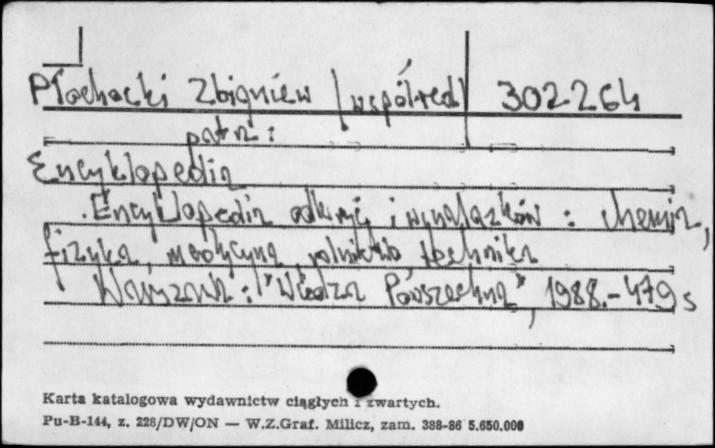 Płochocki Zbigniew (współred) 302264
patrz:
Encyklopedia
Encyklopedia odkryć i wynalazków: chemia,
fizyka, medycyna, rolnictwo technika
Warszawa: "Wiedza Powszechna", 1988.-479 s
Karta katalogowa wydawnictw ciągłych i zwartych.
Pu-B-144, z. 228/DW/ON — W.Z.Graf. Milicz, zam. 388-86 5.650.000